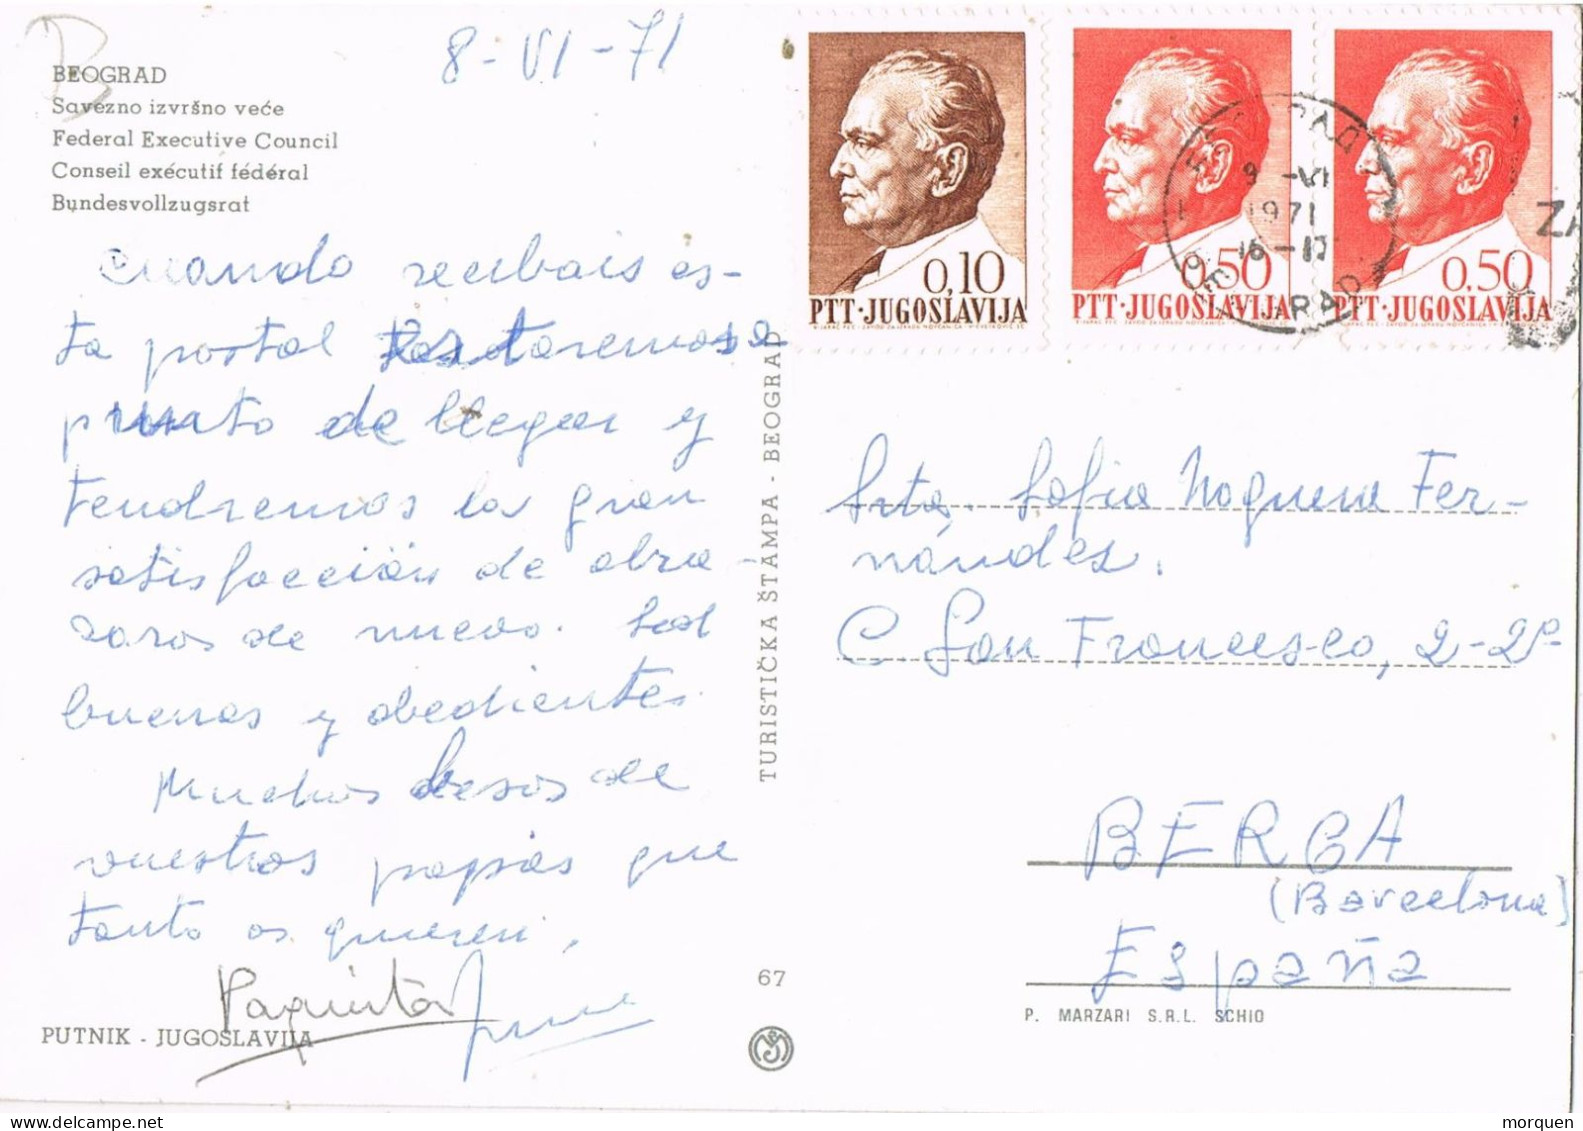 8-VI-71
BEOGRAD
Savezno izvršno veće
Federal Executive Council
Conseil exécutif fédéral
Bundesvollzugsrat
Cuando recibais es-
ta postal estaremos a
punto de llegar y
tendremos la gran
satisfacción de abra-
zaros de nuevo. Sed
buenas y obedientes
Muchos besos de
vuestros papás que
tanto os quieren,
Paquita
PUTNIK - JUGOSLAVIJA
TURISTIČKA ŠTAMPA - BEOGRAD
67
0,10
PTT·JUGOSLAVIJA
0,50
PTT·JUGOSLAVIJA
0,50
PTT·JUGOSLAVIJA
9-VI
1971
16-17
Srta. Sofia Noguera Fer-
nández.
C San Francesco, 2-2º
BERGA
(Barcelona)
España
P. MARZARI S.R.L. SCHIO
morquen